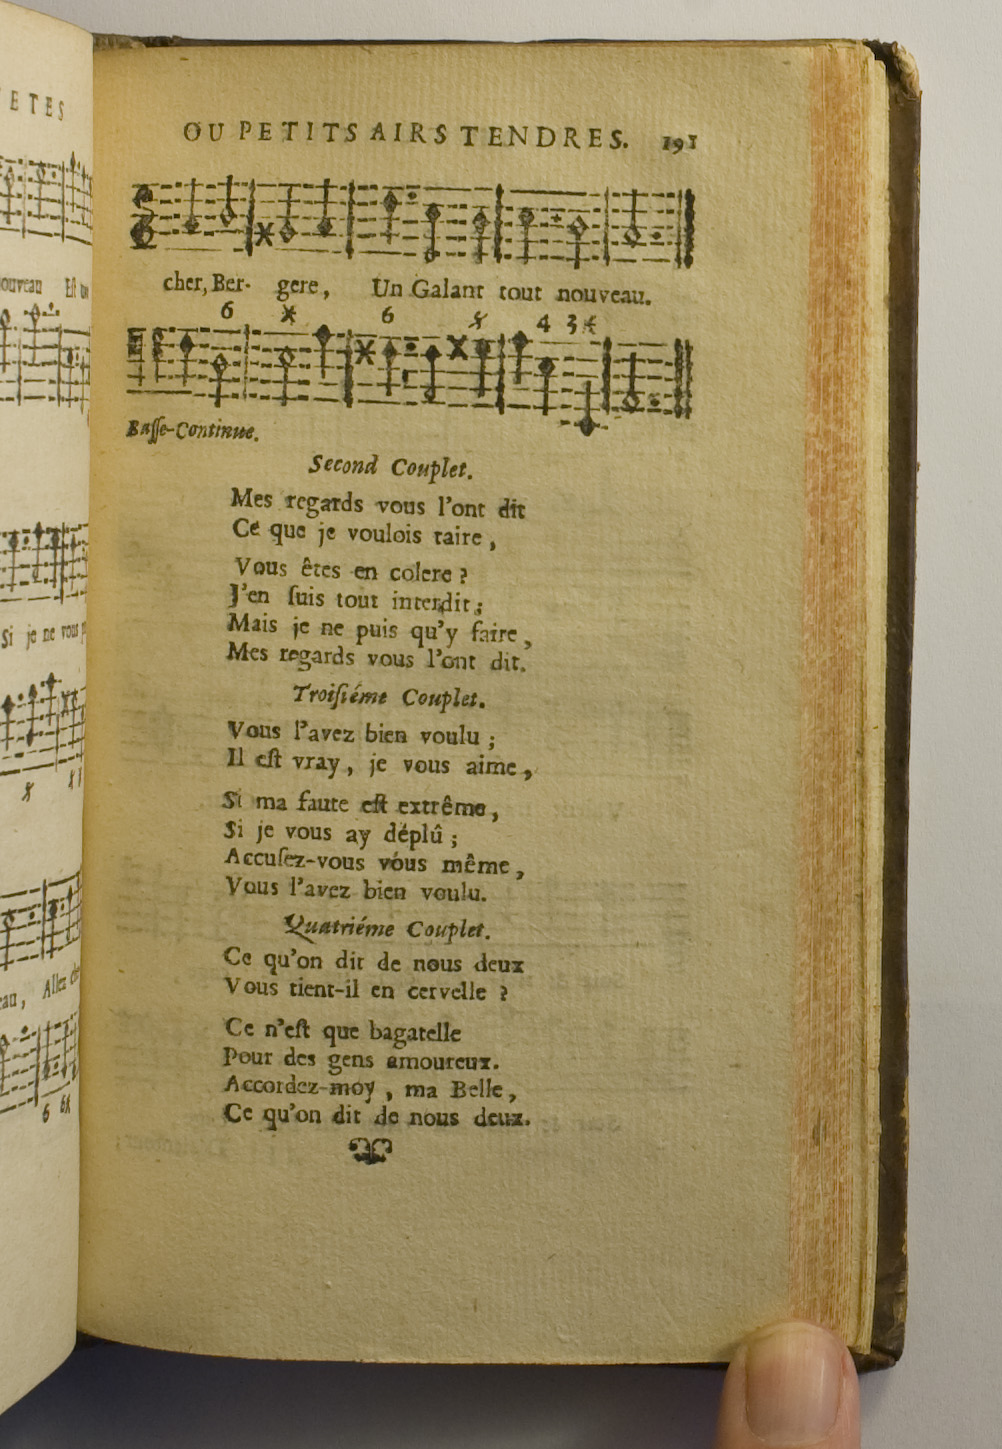 ETES
ouveau Est un
Si je ne vous
6 6
OU PETITS AIRS TENDRES. 191
cher, Ber- gere, Un Galant tout nouveau.
6 6 4 3
Basse-Continue.
Second Couplet.
Mes regards vous l'ont dit
Ce que je voulois taire,
Vous êtes en colere ?
J'en ſuis tout interdit ;
Mais je ne puis qu'y faire,
Mes regards vous l'ont dit.
Troiſiéme Couplet.
Vous l'avez bien voulu ;
Il eſt vray, je vous aime,
Si ma faute eſt extrême,
Si je vous ay déplû ;
Accuſez-vous vous même,
Vous l'avez bien voulu.
Quatriéme Couplet.
Ce qu'on dit de nous deux
Vous tient-il en cervelle ?
Ce n'eſt que bagatelle
Pour des gens amoureux.
Accordez-moy, ma Belle,
Ce qu'on dit de nous deux.